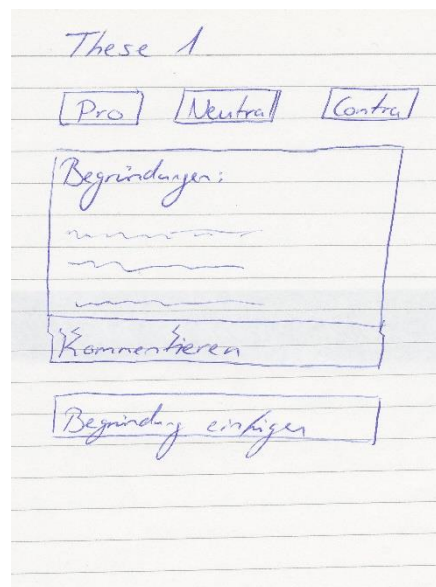 These 1
Pro Neutral Contra
Begründungen:
Kommentieren
Begründung einfügen